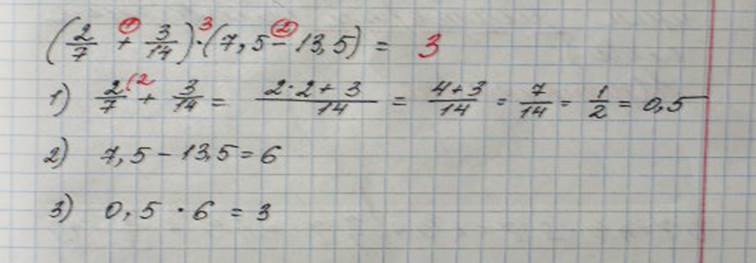 (2/7 + 3/14) · (7,5 - 13,5) = 3
1) 2/7 (2 + 3/14 = 2·2+3/14 = 4+3/14 = 7/14 = 1/2 = 0,5
2) 7,5 - 13,5 = 6
3) 0,5 · 6 = 3